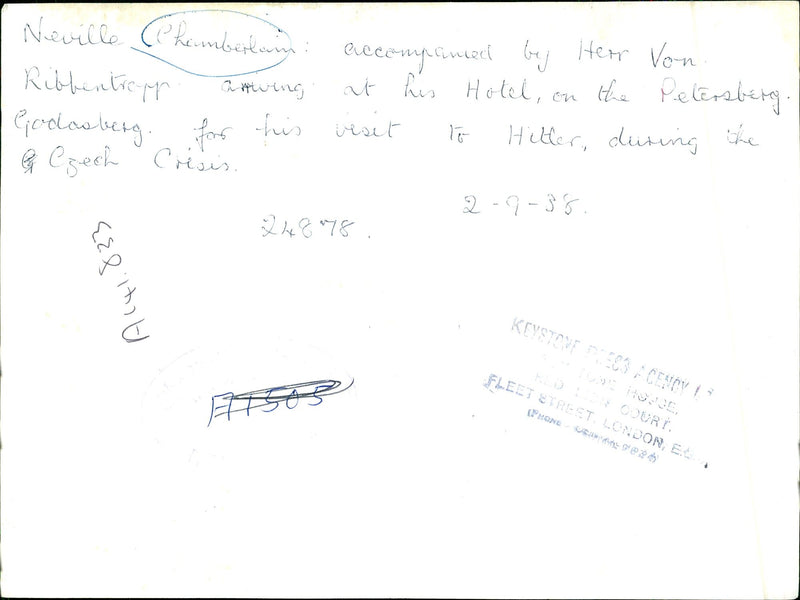 Neville Chamberlain: accompanied by Herr Von
Ribbentropp arriving at his Hotel, on the Petersberg.
Godasberg. for his visit to Hitler, during the
Czech Crisis.
2-9-38.
24878.
A1505
KEYSTONE PRESS AGENCY
HOUSE,
RED LION COURT,
FLEET STREET, LONDON, E.C.